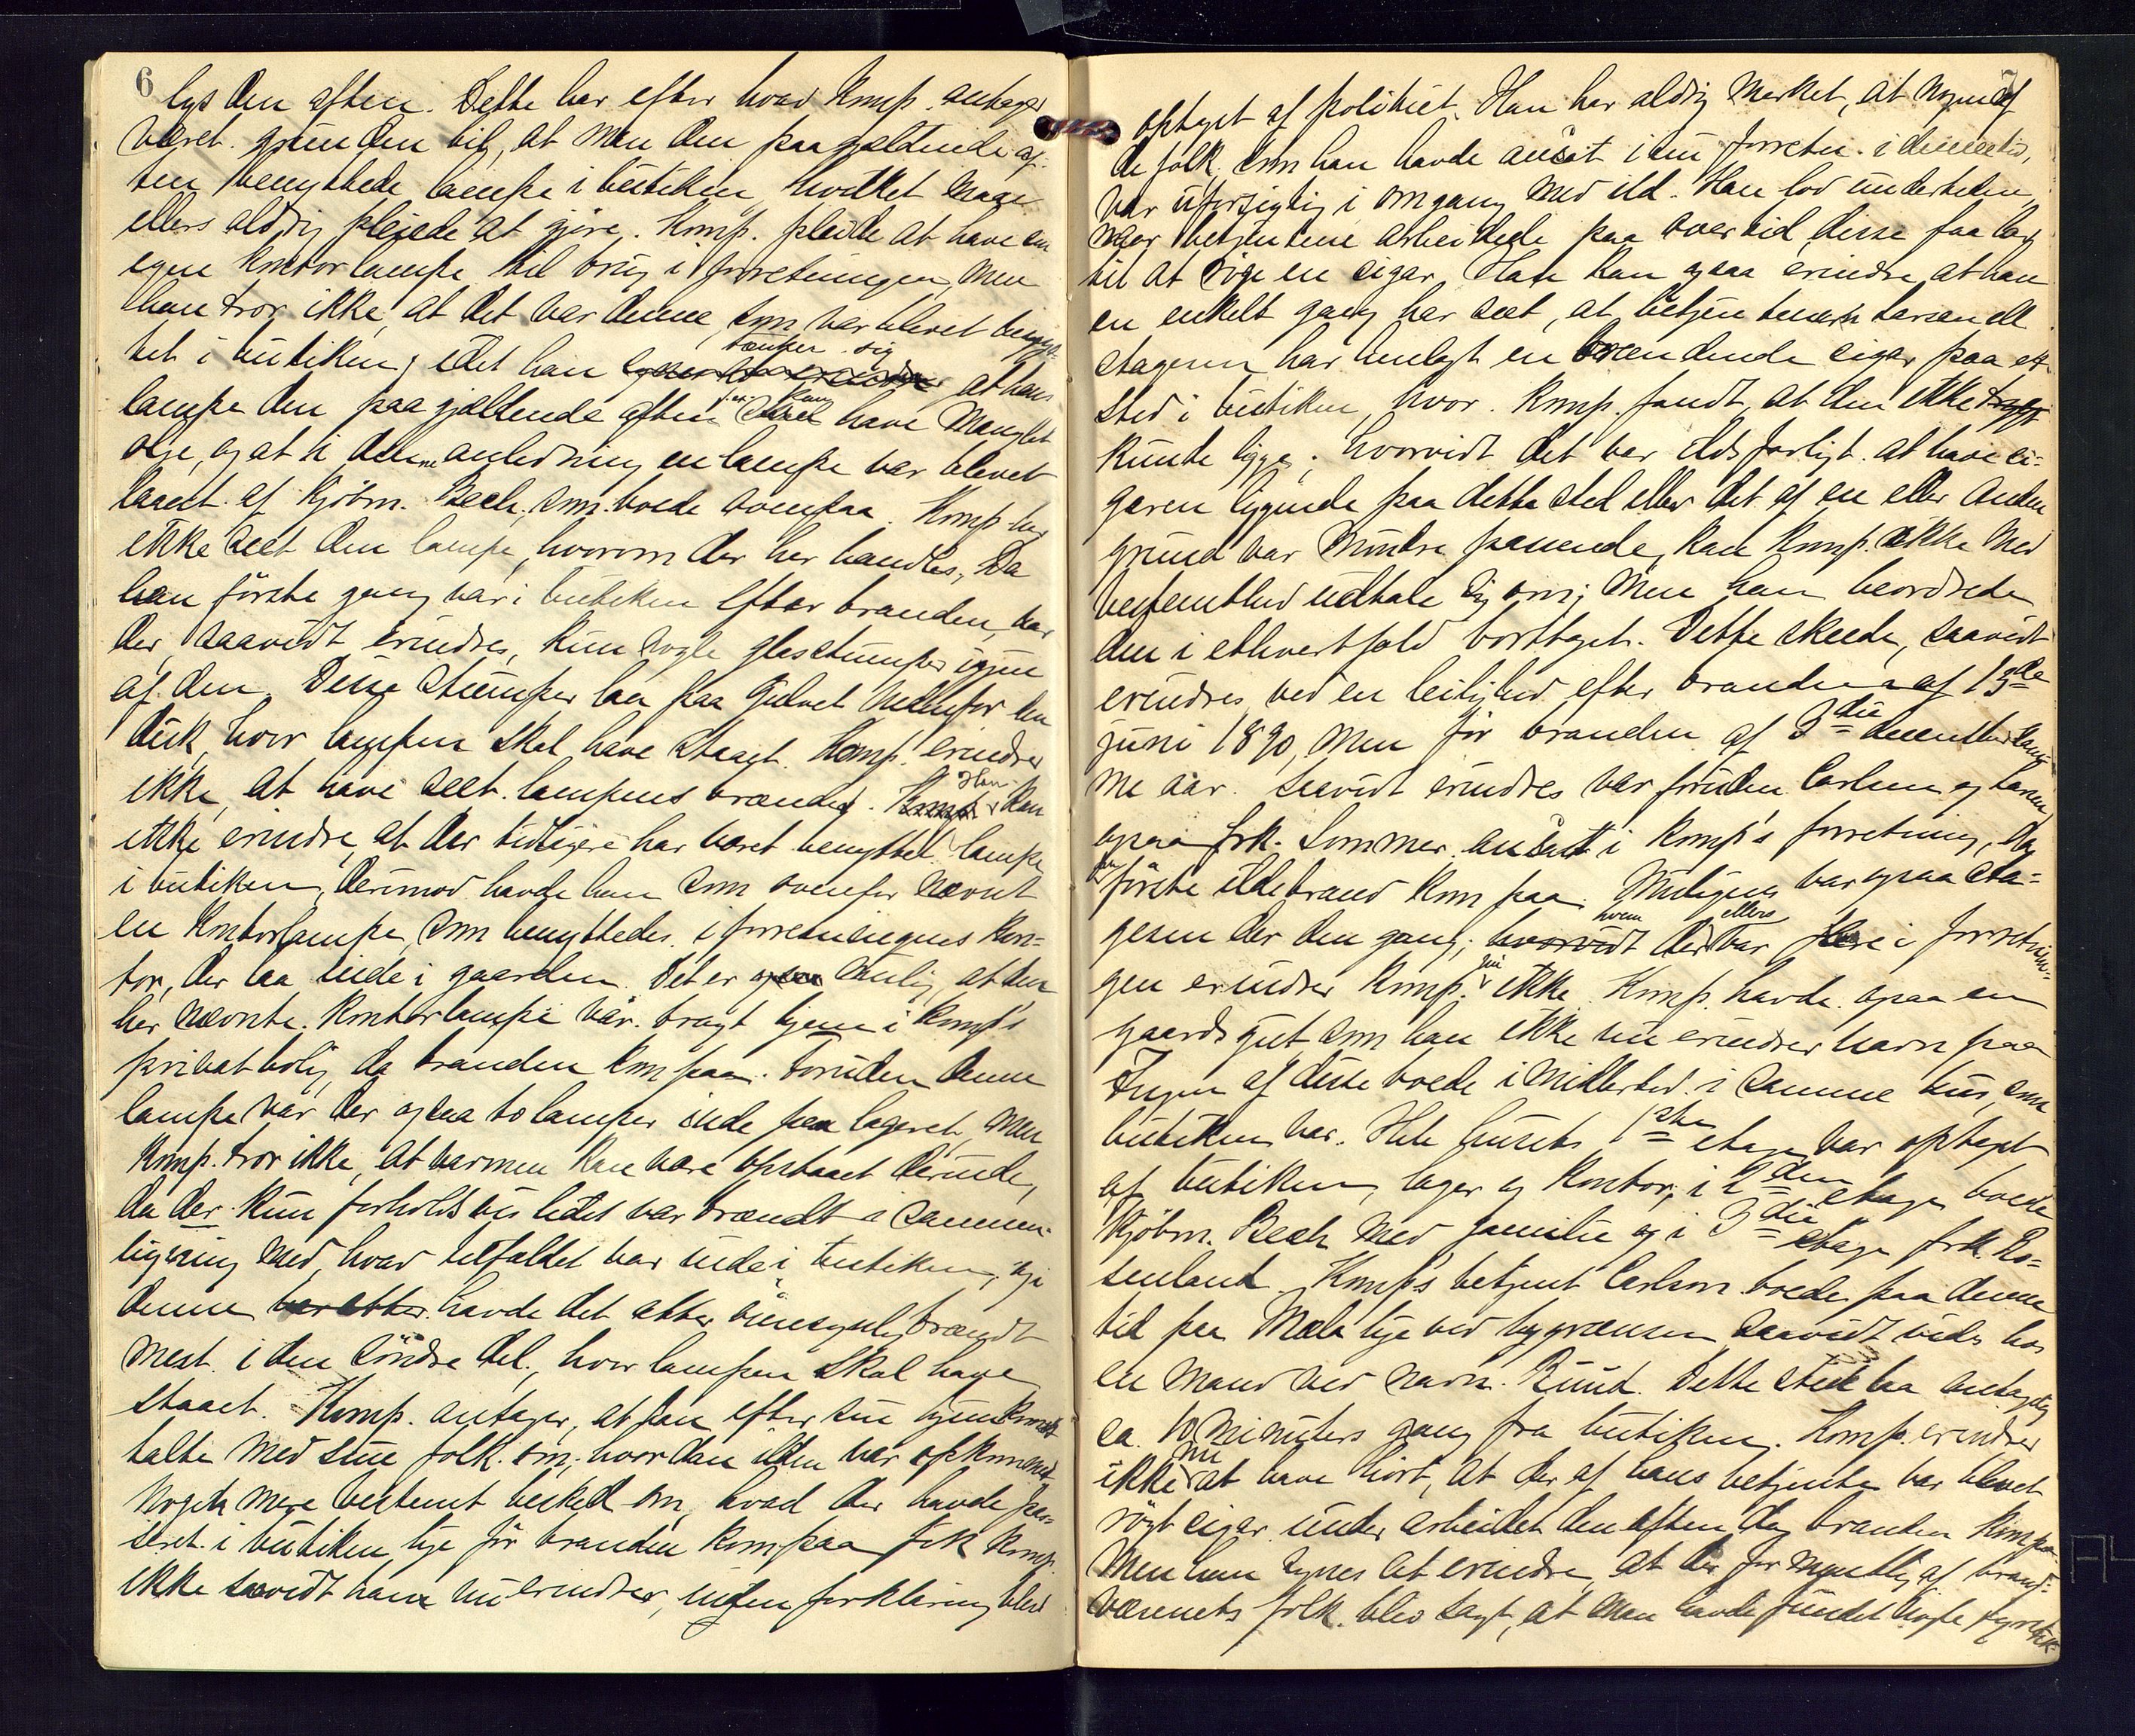 6
lys den aften. Dette har efter hvad Komp. antager
været grunden til, at man den paagjældende af-
ten benyttede lampe i butiken, hvilket man
ellers aldrig pleiede at gjøre. Komp. pleiede at have en
egen kontorlampe til brug i forretningen, men
han tror ikke, at det var denne som var blevet benyt-
tænker sig
tet i butiken, idet han synes at erindre at hans
lampe den paagjældende aften kan have manglet
olje, og at i den anledning en lampe var blevet
laant af Kjøbm. Bech, som boede ovenpaa. Komp. har
ikke seet den lampe, hvorom der her handles. Da
han første gang var i butiken efter branden, var
der, saavidt erindres, kun nogle glasstumper igjen
af den. Disse stumper laa paa gulvet nedenfor den
disk, hvor lampen skal have staaet. Komp. erindrer
ikke at have seet lampens brænder. Komp. Han kan
ikke erindre, at der tidligere har været benyttet lampe
i butiken, derimod havde han som ovenfor nævnt
en kontorlampe, som benyttedes i forretningens kon-
tor, der laa inde i gaarden. Det er ogsaa mulig, at den
her nævnte kontorlampe var bragt hjem i Komp's
privatbolig, da branden kom paa. Foruden denne
lampe var der ogsaa to lamper inde paa lageret, men
Komp. tror ikke, at varmen kan være opstaaet derinde,
da der kun forholdsvis lidet var brændt i sammen-
ligning med, hvad tilfældet var inde i butiken, og i
denne var atter havde det atter øiensynlig brændt
mest i den søndre del, hvor lampen skal have
staaet. Komp. antager, at han efter sin hjemkomst
talte med sine folk om, hvordan ilden var opkommet.
Nogen mere bestemt besked om, hvad der havde pas-
seret i butiken lige før branden kom paa fik Komp.
ikke saavidt han nu erindrer, inden forklaring blev
optaget af politiet. Han har aldrig mærket, at nogen af
de folk, som han havde ansat i sin forretn. i
var uforsigtig i omgang med ild. Han lod undertiden,
naar betjentene arbeidede paa overtid, disse faa lov
til at røge en cigar. Han kan ogsaa erindre at han
en enkelt gang har seet, at betjenten Larsen ell
Stagesen har henlagt en brændende cigar paa et
sted i butiken, hvor Komp. fandt, at den ikke
kunde ligge; hvorvidt det var ildsfarligt at have ci-
garen liggende paa dette sted eller det af en eller anden
grund var mindre passende, kan Komp. ikke med
bestemthed udtale sig om; men han beordrede
den i ethvertfald borttaget. Dette skede, saavidt
erindres ved en leilighed efter branden af 13de
juni 1890, men før branden af 3die december sam-
me aar. Saavidt erindres var foruden Carlsen og Larsen
ogsaa frk. Sommer ansatt i Komp's forretning, da
den første ildebrand kom paa. Muligens var ogsaa Sta-
gesen der den gang; hvorvidt hvem der ellers var flere i forretnin-
gen erindrer Komp. nu ikke. Komp. havde ogsaa en
gaardsgut som han ikke nu erindrer navn paa
Ingen af disse boede imidlertid i samme hus, som
butiken var. Hele husets 1ste etage var optaget
af butiken, lager og kontor; i 2den etage boede
Kjøbm. Bech med familie og i 3die etage frk. Ro-
senland. Komp's betjent Carlsen boede paa denne
tid paa Mæla lige ved bygrænsen saavidt vides hos
en mand ved navn Ruud. Dette sted laa antagelig
ca. 10 minuters gang fra butiken. Komp. erindrer
ikke nu at have hørt, at der af hans betjente var blevet
røgt cigar under arbeidet den aften da branden kom paa.
Men han synes at erindre, at der formentlig af brand-
væsenets folk blev sagt, at man havde fundet nogle fyrstik-